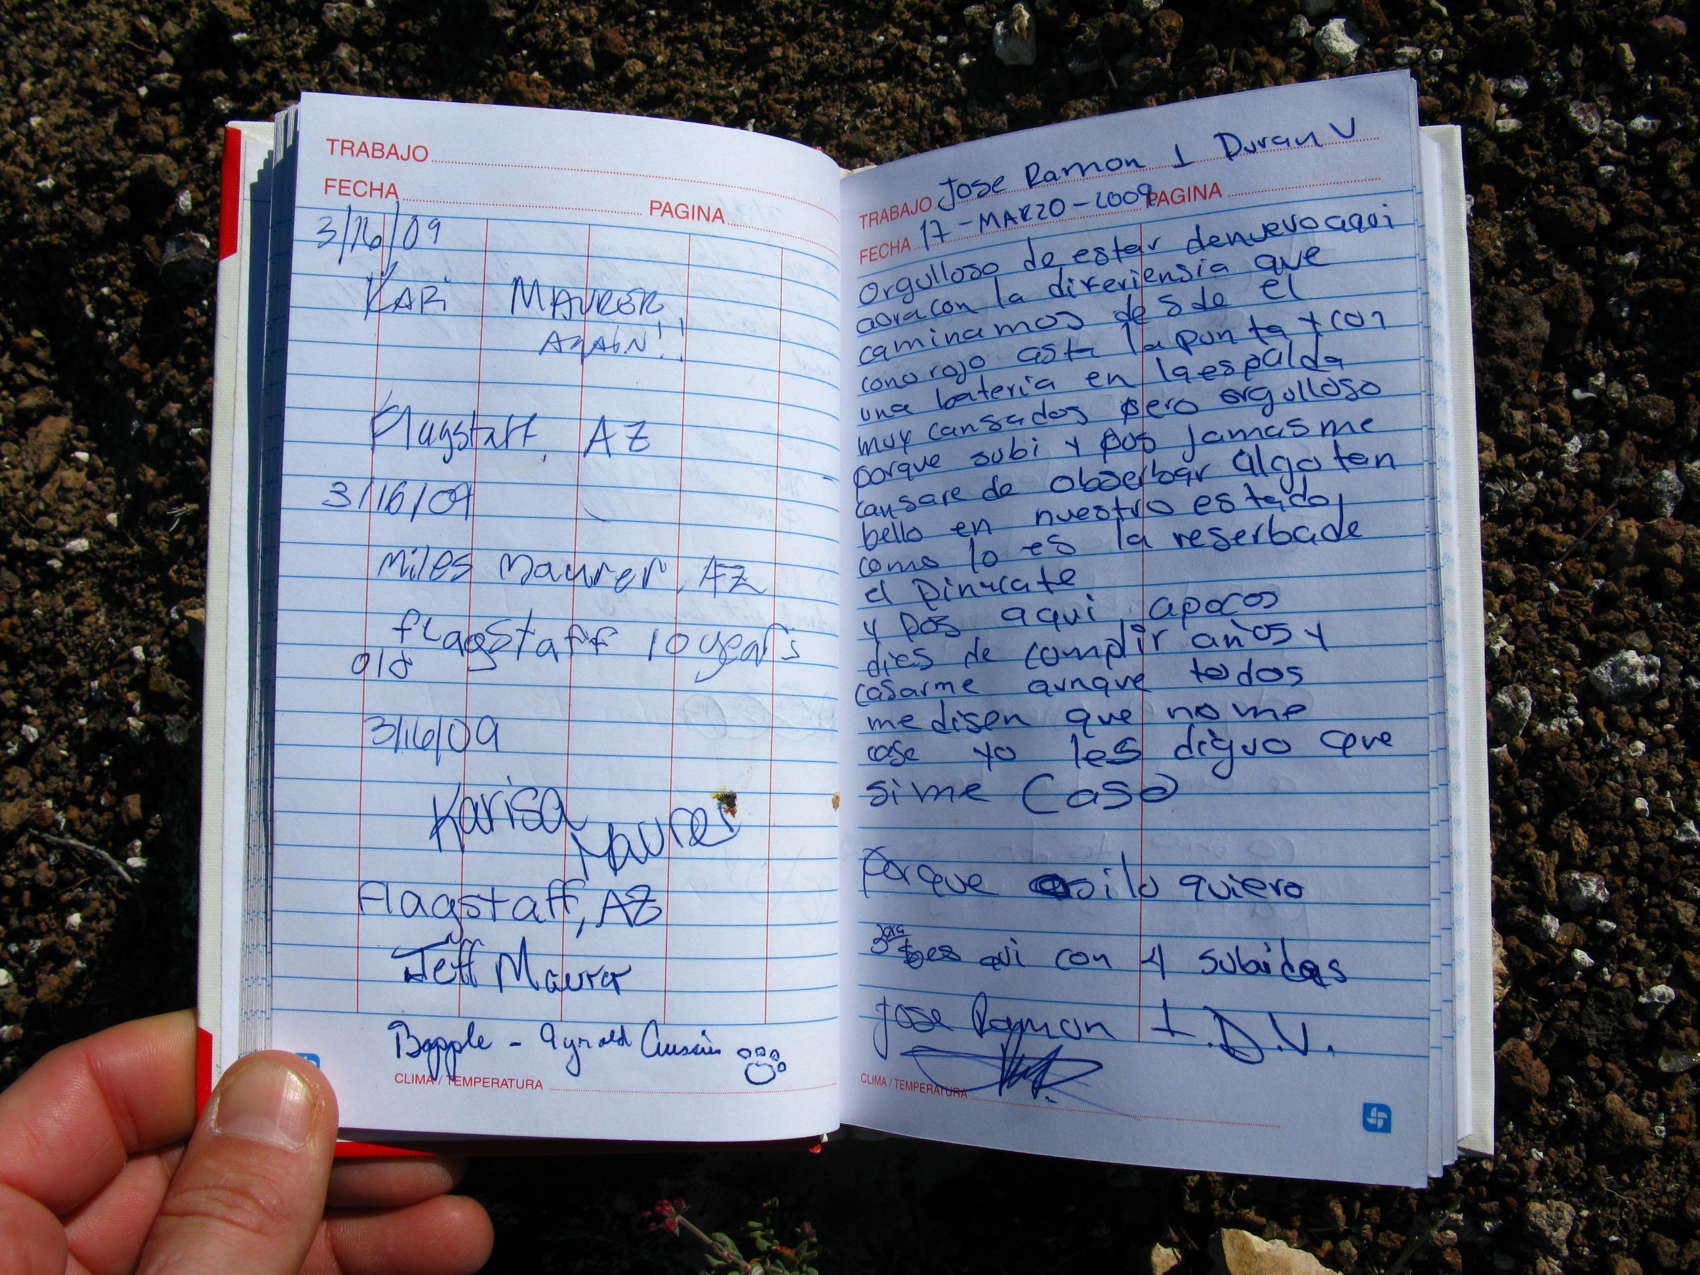 TRABAJO
FECHA PAGINA
3/16/09
KARi MAURER
AGAIN!!
Flagstaff, AZ
3/16/09
Miles Maurer, AZ
flagstaff 10 years
old
3/16/09
Karisa Maurer
Flagstaff, AZ
Jeff Maurer
Bapple -
CLIMA / TEMPERATURA
TRABAJO Jose Ramon 1 Duran V
FECHA 17-MARZO-2009 PAGINA
orgulloso de estar denuevo aqui
aora con la diferiensia que
caminamos desde el
cono rojo asta la punta y con
una bateria en la espalda
muy cansados pero orgulloso
porque subi y pos jamas me
cansare de obserbar algo tan
bello en nuestro estado
como lo es la reserbade
el pinacate
y pos aqui apocos
dies de complir años y
casarme aunque todos
me disen que no me
case yo les diguo que
sime Caso
Porque asilo quiero
con 4 subidas
Jose Ramon 1. D.V.
CLIMA / TEMPERATURA